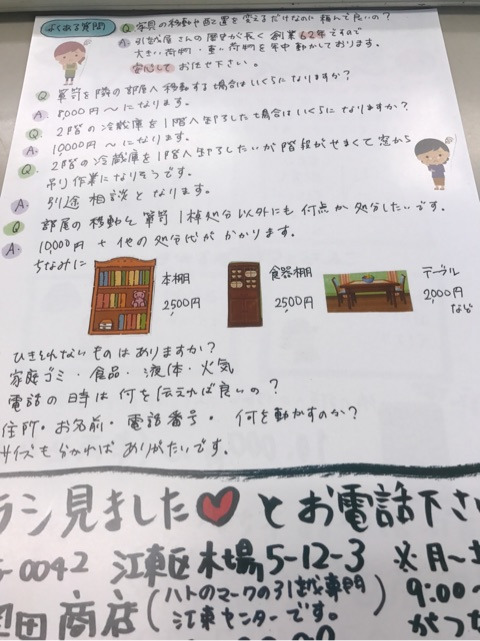 よくある質問
Q. 家具の移動や配置を変えるだけなのに頼んで良いの?
A. 引越屋さんの歴史が長く創業62年ですので
大きい荷物・重い荷物を年中動かしております。
安心してお任せ下さい。
Q 箪笥を隣の部屋へ移動する場合はいくらになりますか?
A. 8000円〜になります。
Q. 2階の冷蔵庫を1階へ下した場合はいくらになりますか?
A. 10,000円〜になります。
Q. 2階の冷蔵庫を1階へ下したいが階段がせまくて窓から
吊り作業になりそうです。
A. 別途相談となります。
Q 部屋の移動と箪笥1棹処分以外にも何点か処分したいです。
A. 10,000円+他の処分代がかかります。
ちなみに
本棚
2500円
食器棚
2500円
テーブル
2,000円
など
ひきとれないものはありますか?
家庭ゴミ・食品・液体・火気
電話の時は何を伝えれば良いの?
住所・お名前・電話番号・何を動かすのか?
サイズも分かればありがたいです。
ラシ見ました♥とお電話下さ
-0042 江東区木場5-12-3 ※月〜
田商店(ハトのマークの引越専門 9:00〜
江東センターです。) がつ